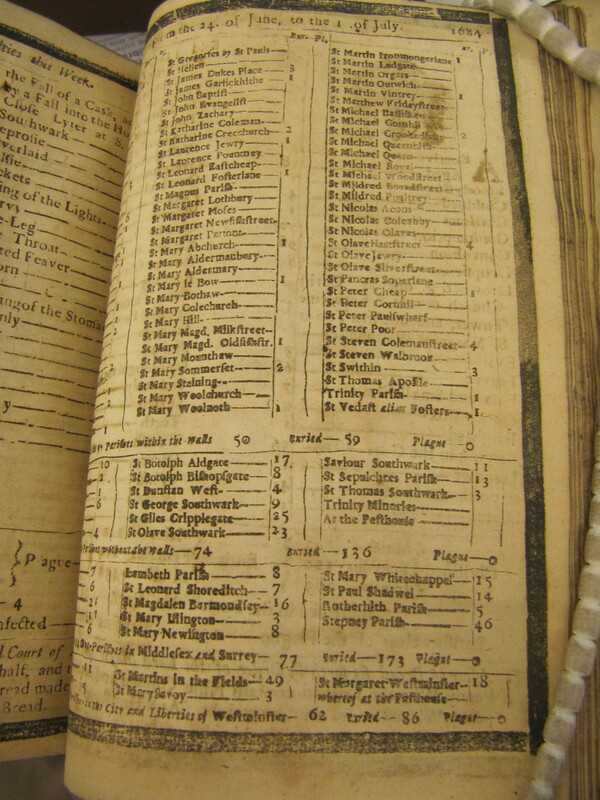 ties this Week.
the Fall of a Cask, a
by a Fall into the Ho
Close Lyter at S.
Southwark
eprosie
verlaid
lsie
ckets
ng of the Lights
rvy
e-Leg
Throat
ted Feaver
orn
ang of the Stoma
nly
y
Plague
4
nfected
l Court of
half, and t
read made
Bread.
from the 24. of June, to the 1 of July. 168
Bur. Pl.
St Gregories by St Pauls
St Hellen
St James Dukes Place 3
St James Garlickhithe 1
St John Baptist
St John Evangelist
St John Zachary
St Katharine Coleman
St Katharine Creechurch 2
St Laurence Jewry 1
St Laurence Pountney
St Leonard Eastcheap
St Leonard Fosterlane 1
St Magnus Parish
St Margaret Lothbury
St Margaret Moses
St Margaret Newfishstreet
St Margaret Pattons
St Mary Abchurch 1
St Mary Aldermanbury
St Mary Aldermary
St Mary le Bow 1
St Mary Bothaw
St Mary Colechurch
St Mary Hill
St Mary Magd. Milkstreet
St Mary Magd. Oldfishstr. 1
St Mary Mounthaw
St Mary Sommerset 2
St Mary Staining
St Mary Woolchurch
St Mary Woolnoth 1
St Martin Ironmongerlane 1
St Martin Ludgate
St Martin Orgars
St Martin Outwich
St Martin Vintrey 1
St Matthew Fridaystreet
St Michael Bassishaw
St Michael Cornhil
St Michael Crookedlane
St Michael Queenhith
St Michael Quern
St Michael Royal
St Michael Woodstreet
St Mildred Breadstreet
St Mildred Poultrey
St Nicolas Acons
St Nicolas Coleabby
St Nicolas Olaves
St Olave Hartstreet 4
St Olave Jewry
St Olave Silverstreet
St Pancras Soperlane
St Peter Cheap 1
St Peter Cornhil
St Peter Paulswharf
St Peter Poor
St Steven Colemanstreet 4
St Steven Walbrook
St Swithin 3
St Thomas Apostle
Trinity Parish 1
St Vedast alias Fosters 1
Parishes within the Walls 50 Buried 59 Plague 0
St Botolph Aldgate 17
St Botolph Bishopsgate 8
St Dunstan West 4
St George Southwark 9
St Giles Cripplegate 25
St Olave Southwark 23
Saviour Southwark 11
St Sepulchres Parish 13
St Thomas Southwark 3
Trinity Minories
At the Pesthouse
Parishes without the Walls 74 Buried 136 Plague 0
Lambeth Parish 8
St Leonard Shoreditch 7
St Magdalen Bermondsey 16
St Mary Islington 3
St Mary Newington 8
St Mary Whitechappel 15
St Paul Shadwel 14
Rotherhith Parish 5
Stepney Parish 46
Out-Parishes in Middlesex and Surrey 77 Buried 173 Plague 0
St Martins in the Fields 49
St Mary Savoy 3
St Margaret Westminster 18
whereof at the Pesthouse
City and Liberties of Westminster 62 Buried 86 Plague 0